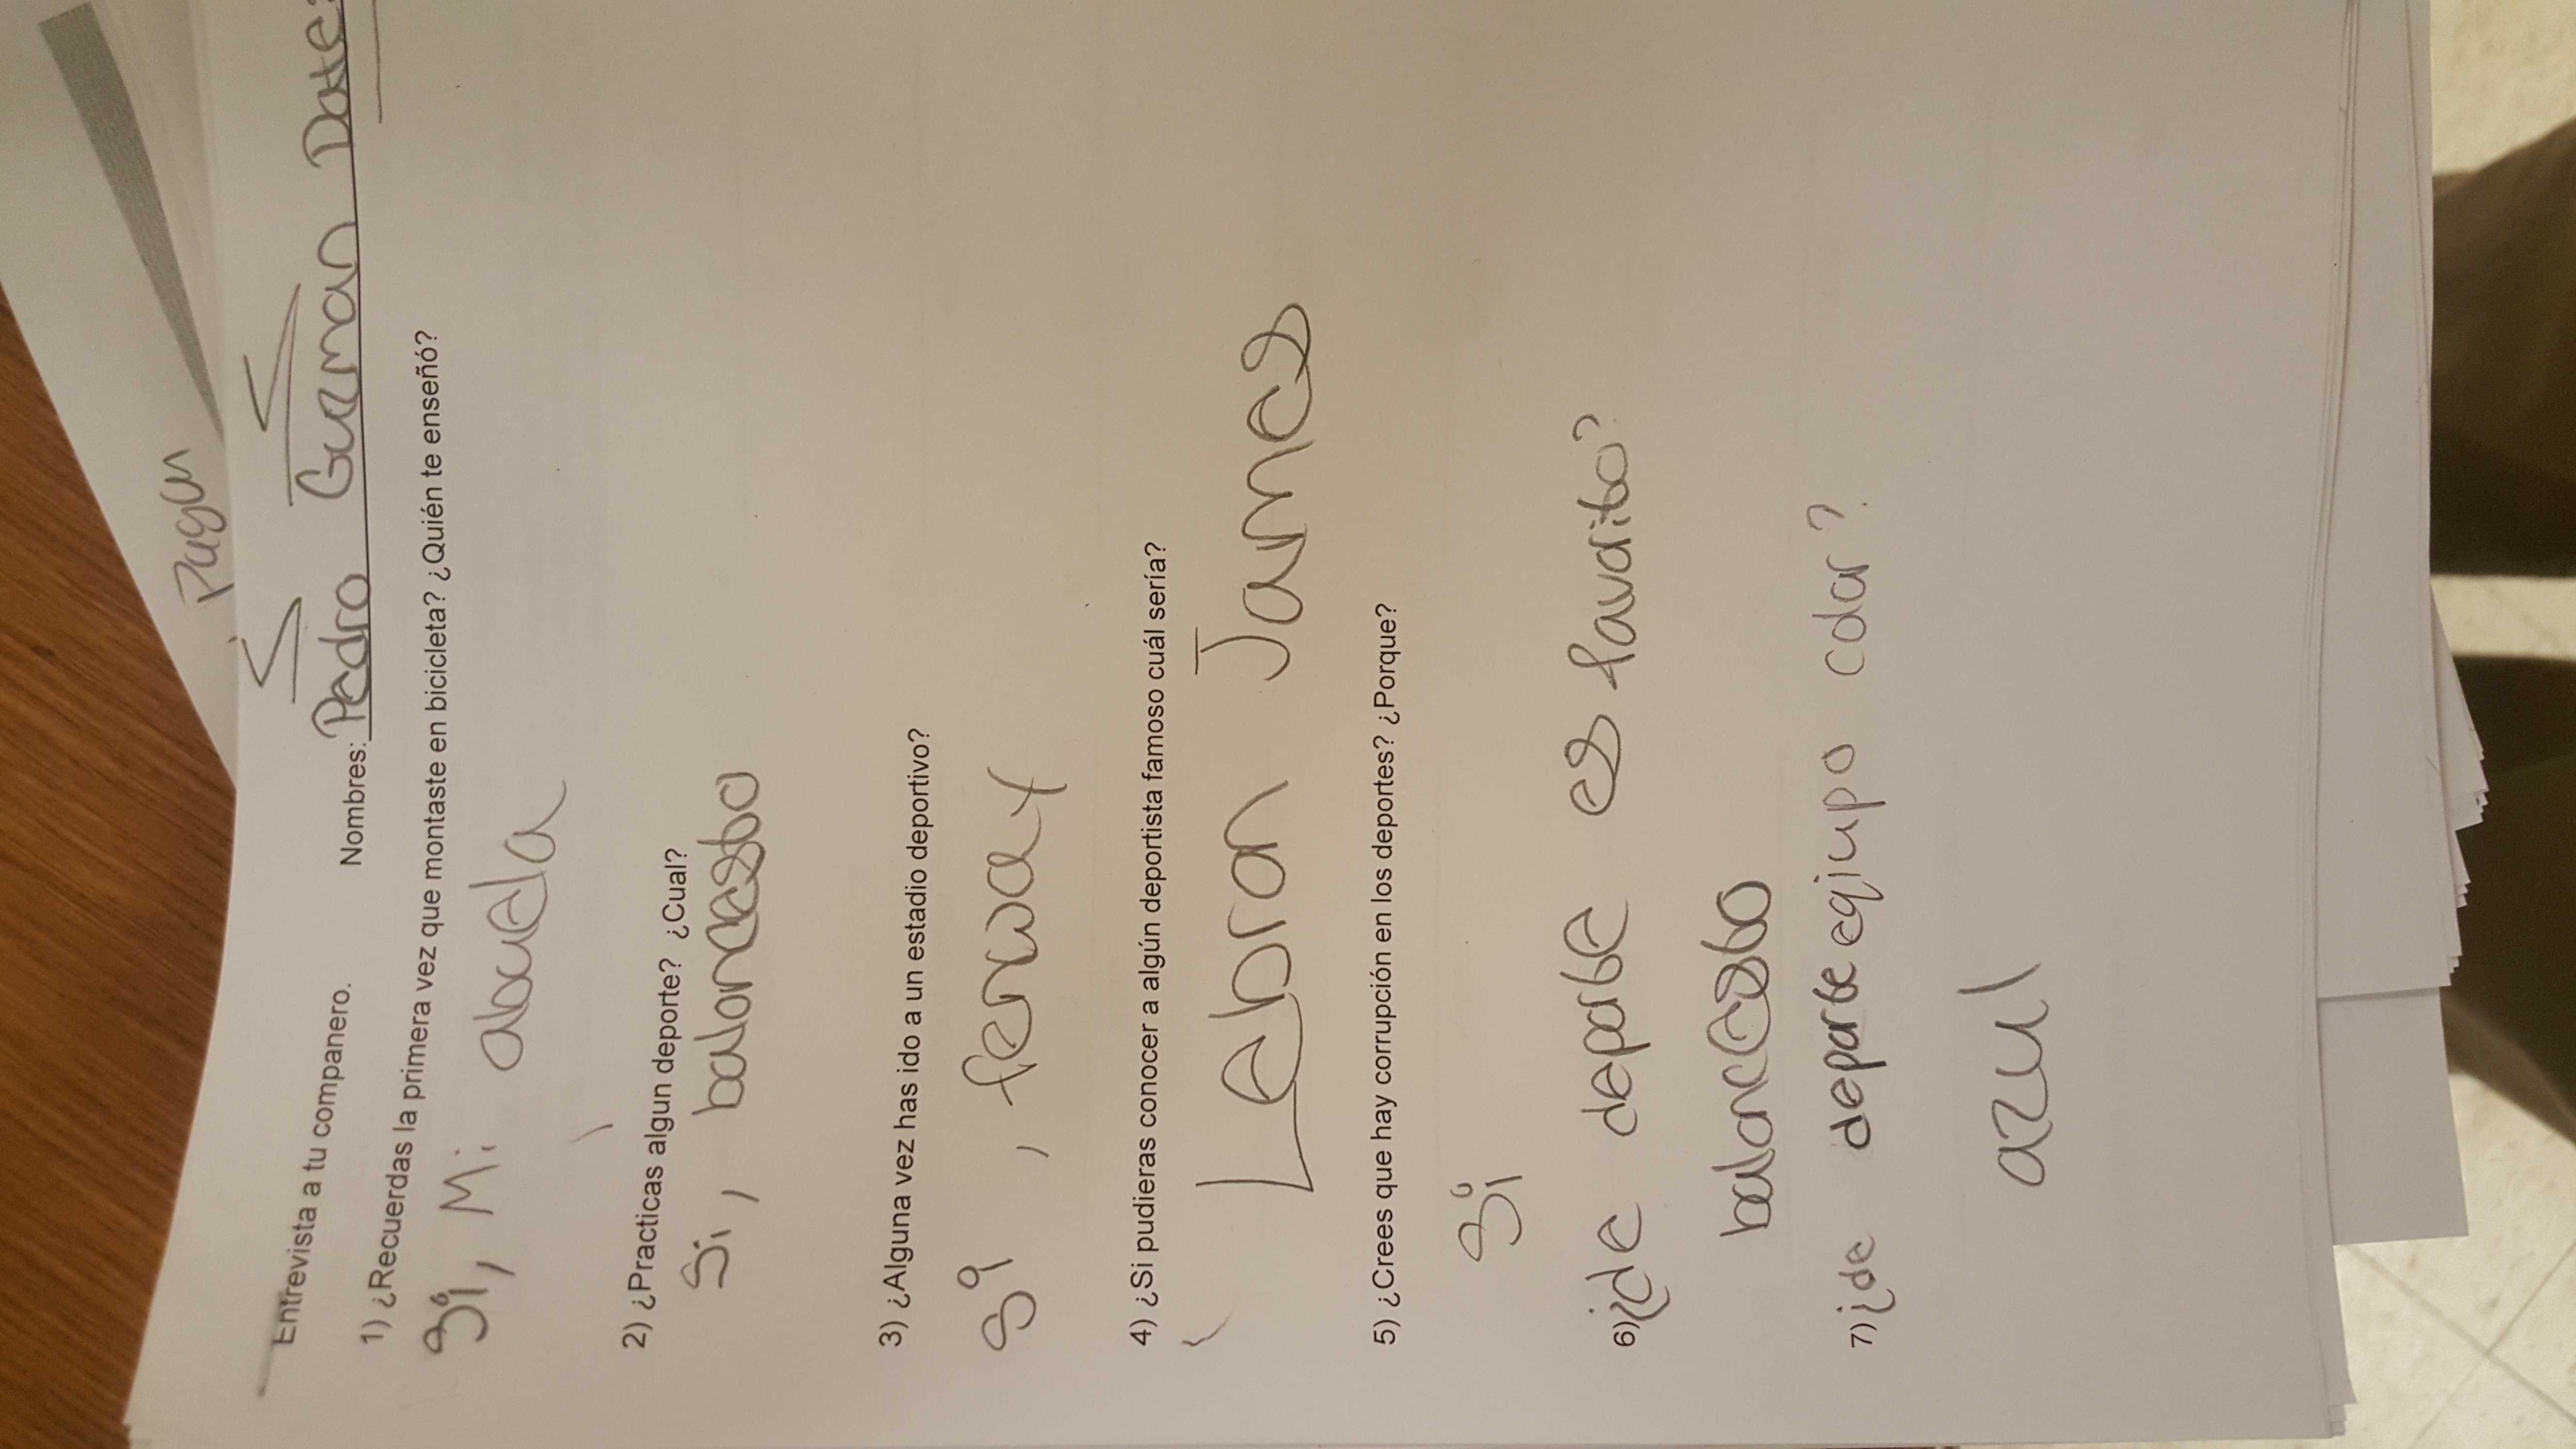 Pagan
Entrevista a tu companero.
Nombres: Pedro Guzman Date:
1) ¿Recuerdas la primera vez que montaste en bicicleta? ¿Quién te enseñó?
Si, Mi abuela
2) ¿Practicas algun deporte? ¿Cual?
Si, baloncesto
3) ¿Alguna vez has ido a un estadio deportivo?
Si, fenway
4) ¿Si pudieras conocer a algún deportista famoso cuál sería?
Lebron James
5) ¿Crees que hay corrupción en los deportes? ¿Porque?
Si
6) ¿de deporte es favorito?
baloncesto
7) ¿de deporte eqiupo color?
azul